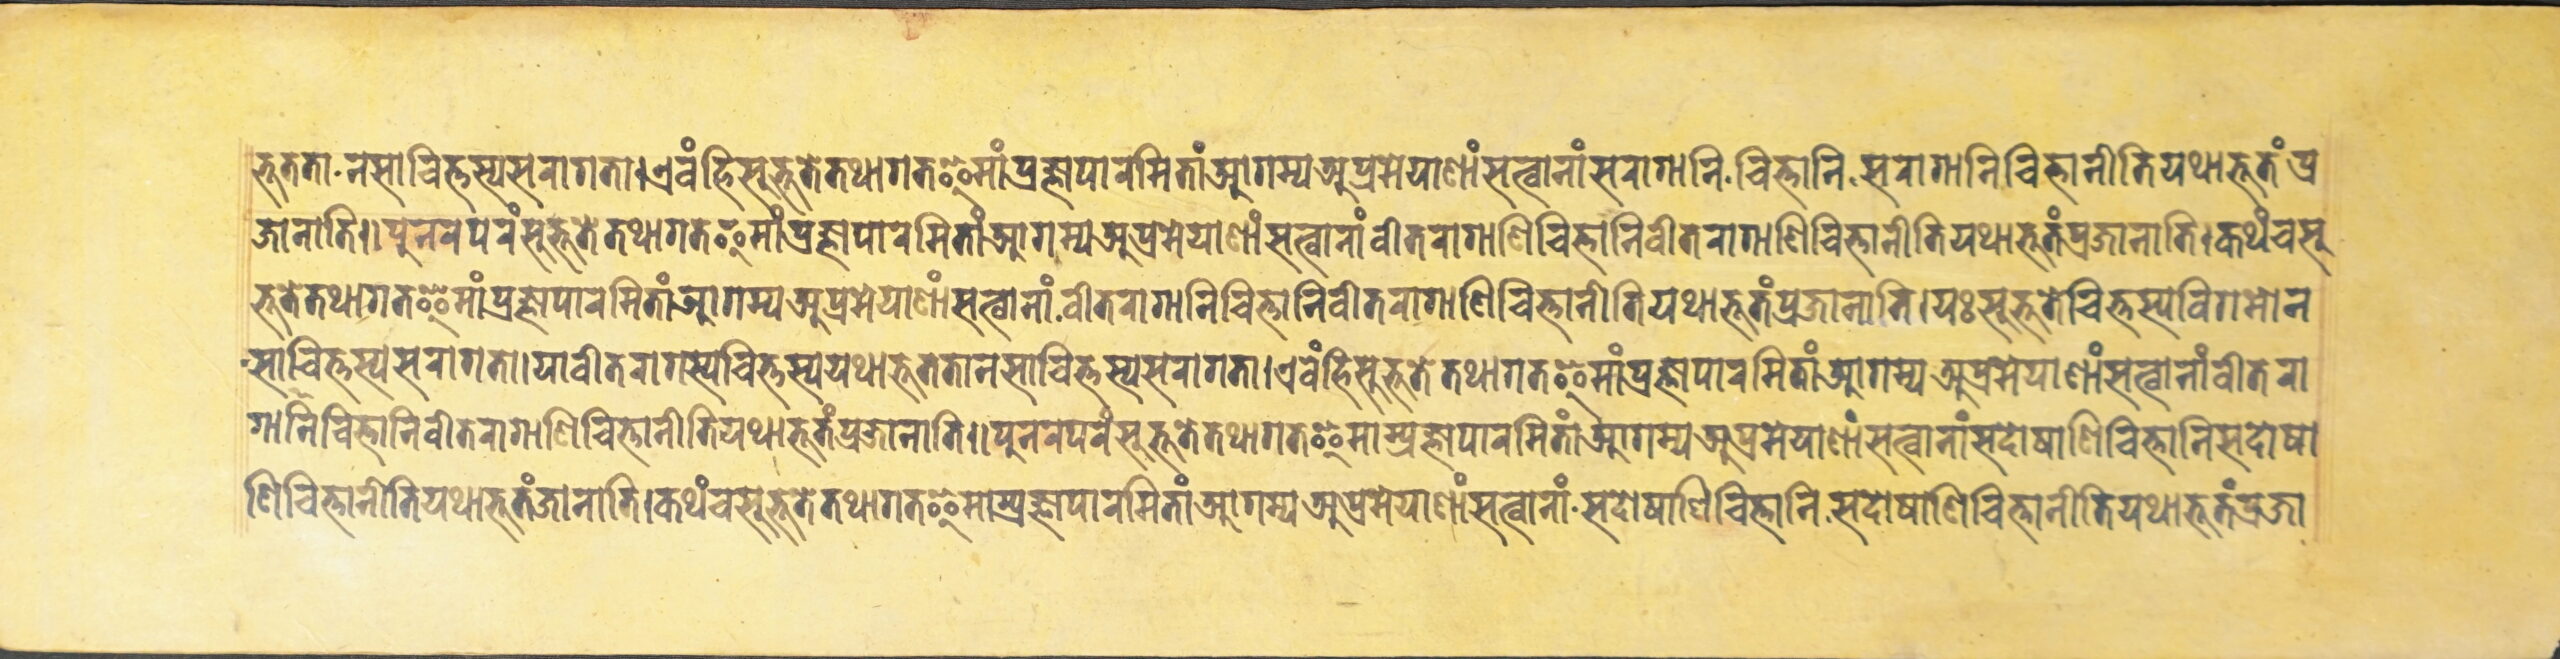 भूतता·नसाचित्तस्यसरागता।एवंहिसुभूतेतथागतइमांप्रज्ञापारमितांआगम्यअप्रमेयाणांसत्वानांसरागानि·चित्तानि·सरागानिचित्तानीतियथाभूतंप्र
जानाति॥पुनरपरंसुभूतेतथागतइमांप्रज्ञापारमितांआगम्यअप्रमेयाणांसत्वानांवीतरागाणिचित्तानिवीतरागाणिचित्तानीतियथाभूतंप्रजानाति।कथंचसु
भूतेतथागतइमांप्रज्ञापारमितांआगम्यअप्रमेयाणांसत्वानांवीतरागानिचित्तानिवीतरागाणिचित्तानीतियथाभूतंप्रजानाति।यःसुभूतेचित्तस्यविगमोन
साचित्तस्यसरागता।यावीतरागस्यचित्तस्ययथाभूततानसाचित्तस्यसरागता।एवंहिसुभूतेतथागतइमांप्रज्ञापारमितांआगम्यअप्रमेयाणांसत्वानांवीतरा
गानिचित्तानिवीतरागाणिचित्तानीतियथाभूतंप्रजानाति॥पुनरपरंसुभूतेतथागतइमाम्प्रज्ञापारमितांआगम्यअप्रमेयाणांसत्वानांसदोषाणिचित्तानिसदोषा
णिचित्तानीतियथाभूतंजानाति।कथंचसुभूतेतथागतइमाम्प्रज्ञापारमितांआगम्यअप्रमेयाणांसत्वानां·सदोषाणिचित्तानि·सदोषाणिचित्तानीतियथाभूतंप्रजा